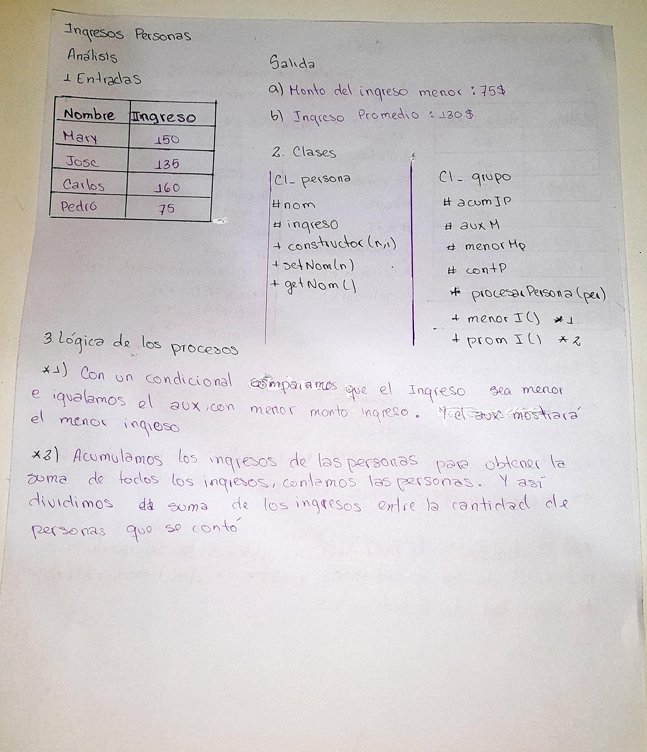 Ingresos Personas
Análisis
1 Entradas
Nombre Ingreso
Mary 150
Jose 135
Carlos 160
Pedro 75
Salida
a) Monto del ingreso menor : 75$
b) Ingreso Promedio : 130$
2. Clases
Cl_ persona
# nom
# ingreso
+ constructor(n,i)
+ setNom(n)
+ getNom()
Cl_ grupo
# acumIP
# auxM
# menorMp
# contP
+ procesarPersona(per)
+ menorI() *1
+ promI() *2
3. Lógica de los procesos
*1) Con un condicional comparamos que el Ingreso sea menor
e igualamos el aux, con menor monto ingreso. Y el aux mostrará
el menor ingreso
*2) Acumulamos los ingresos de las personas para obtener la
suma de todos los ingresos, contamos las personas. Y así
dividimos la suma de los ingresos entre la cantidad de
personas que se contó